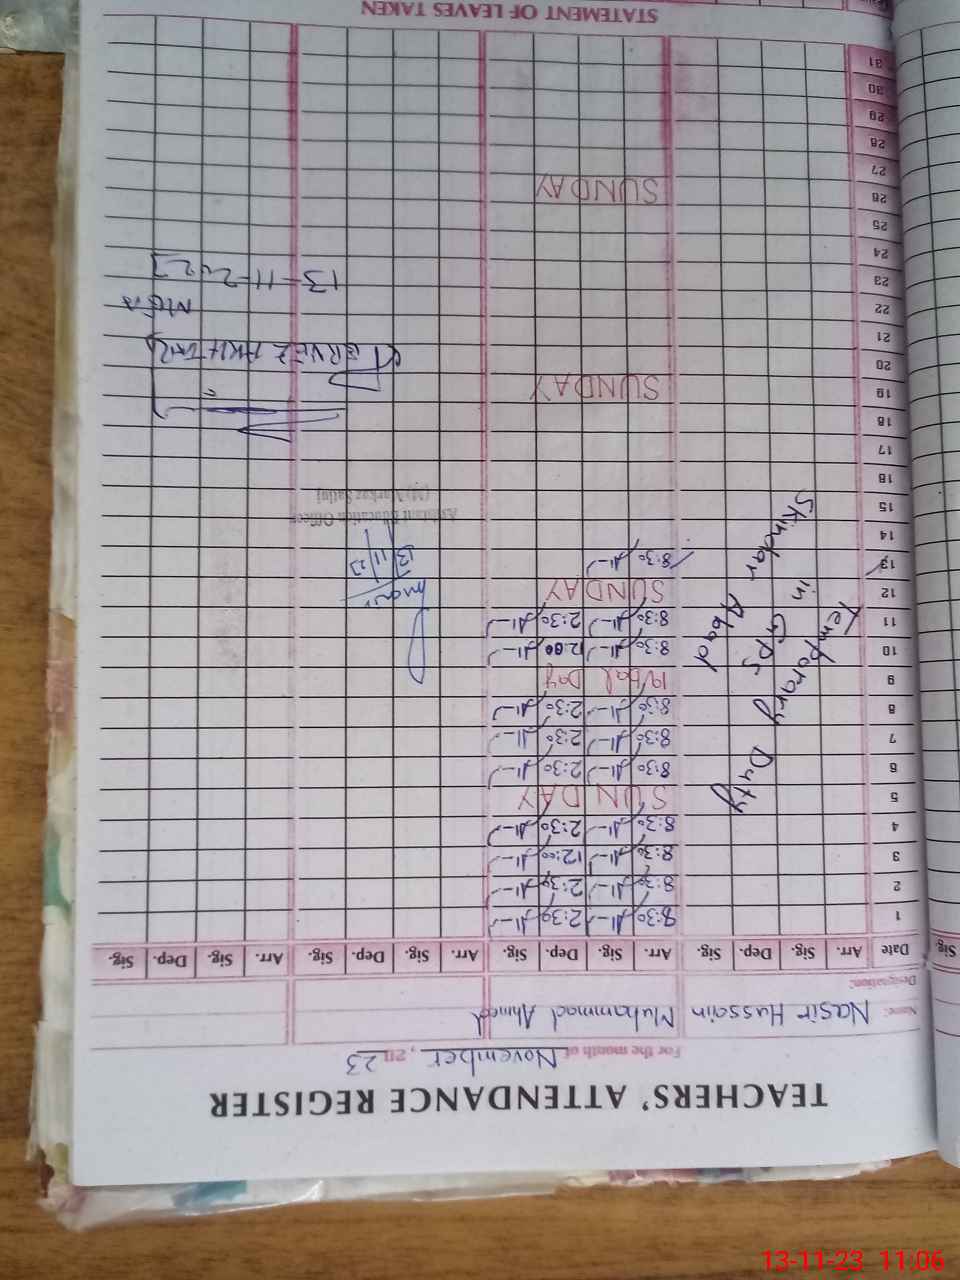 TEACHERS' ATTENDANCE REGISTER
For the month of November, 2023
Name: Nasir Hussain Muhammad Ahmed
Designation:
Date Arr. Sig. Dep. Sig. Arr. Sig. Dep. Sig. Arr. Sig. Dep. Sig. Arr. Sig. Dep. Sig.
1 8:30 2:30
2 8:30 2:30
3 8:30 12:00
4 8:30 2:30
5 SUNDAY
6 8:30 2:30
7 8:30 2:30
8 8:30 2:30
9 Iqbal Day
10 8:30 12:00
11 8:30 2:30
12 SUNDAY
13 8:30
14
15
16
17
18
19 SUNDAY
20
21
22
23
24
25
26 SUNDAY
27
28
29
30
31
Temporary Duty
in GPS
Skindar Abad
13/11/23
Assistant Education Officer
(M) Markaz
PERVEZ AKHTAR
MEA
13-11-2023
STATEMENT OF LEAVES TAKEN
Sig.
13-11-23 11:06